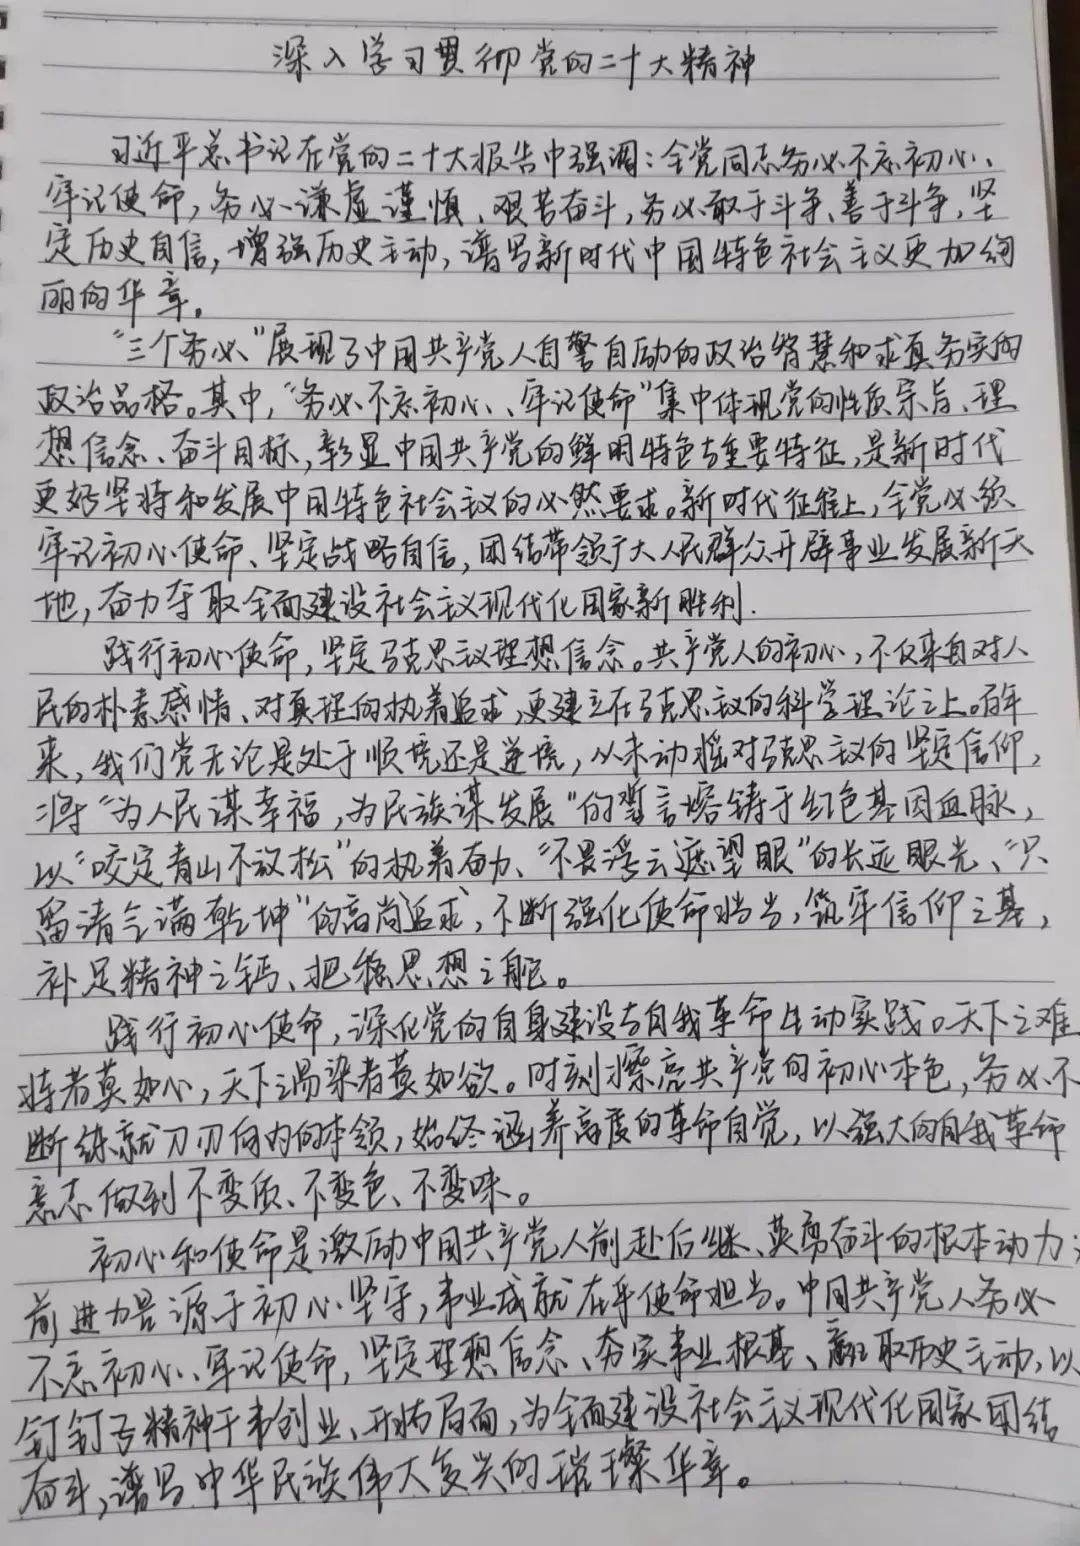 深入学习贯彻党的二十大精神
习近平总书记在党的二十大报告中强调:全党同志务必不忘初心、
牢记使命,务必谦虚谨慎、艰苦奋斗,务必敢于斗争、善于斗争,坚
定历史自信,增强历史主动,谱写新时代中国特色社会主义更加绚
丽的华章。
“三个务必”展现了中国共产党人自警自励的政治智慧和求真务实的
政治品格。其中,“务必不忘初心、牢记使命”集中体现党的性质宗旨、理
想信念、奋斗目标,彰显中国共产党的鲜明特色与重要特征,是新时代
更好坚持和发展中国特色社会主义的必然要求。新时代征程上,全党必须
牢记初心使命、坚定战略自信,团结带领广大人民群众开辟事业发展新天
地,奋力夺取全面建设社会主义现代化国家新胜利.
践行初心使命,坚定马克思主义理想信念。共产党人的初心,不仅来自对人
民的朴素感情、对真理的执着追求,更建立在马克思主义的科学理论之上。百年
来,我们党无论是处于顺境还是逆境,从未动摇对马克思主义的坚定信仰,
将“为人民谋幸福,为民族谋发展”的誓言熔铸于红色基因血脉,
以“咬定青山不放松”的执着奋力、“不畏浮云遮望眼”的长远眼光、“只
留清气满乾坤”的高尚追求,不断强化使命担当,筑牢信仰之基,
补足精神之钙、把稳思想之舵。
践行初心使命,深化党的自身建设与自我革命生动实践。天下之难
持者莫如心,天下之易染者莫如欲。时刻擦亮共产党的初心本色,务必不
断练就刀刃向内的本领,始终涵养高度的革命自觉,以强大的自我革命
意志做到不变质、不变色、不变味。
初心和使命是激励中国共产党人前赴后继、英勇奋斗的根本动力;
前进力量源于初心坚守,事业成就在乎使命担当。中国共产党人务必
不忘初心、牢记使命,坚定理想信念、夯实事业根基、赢取历史主动,以
钉钉子精神干事创业、开拓局面,为全面建设社会主义现代化国家团结
奋斗,谱写中华民族伟大复兴的璀璨华章。